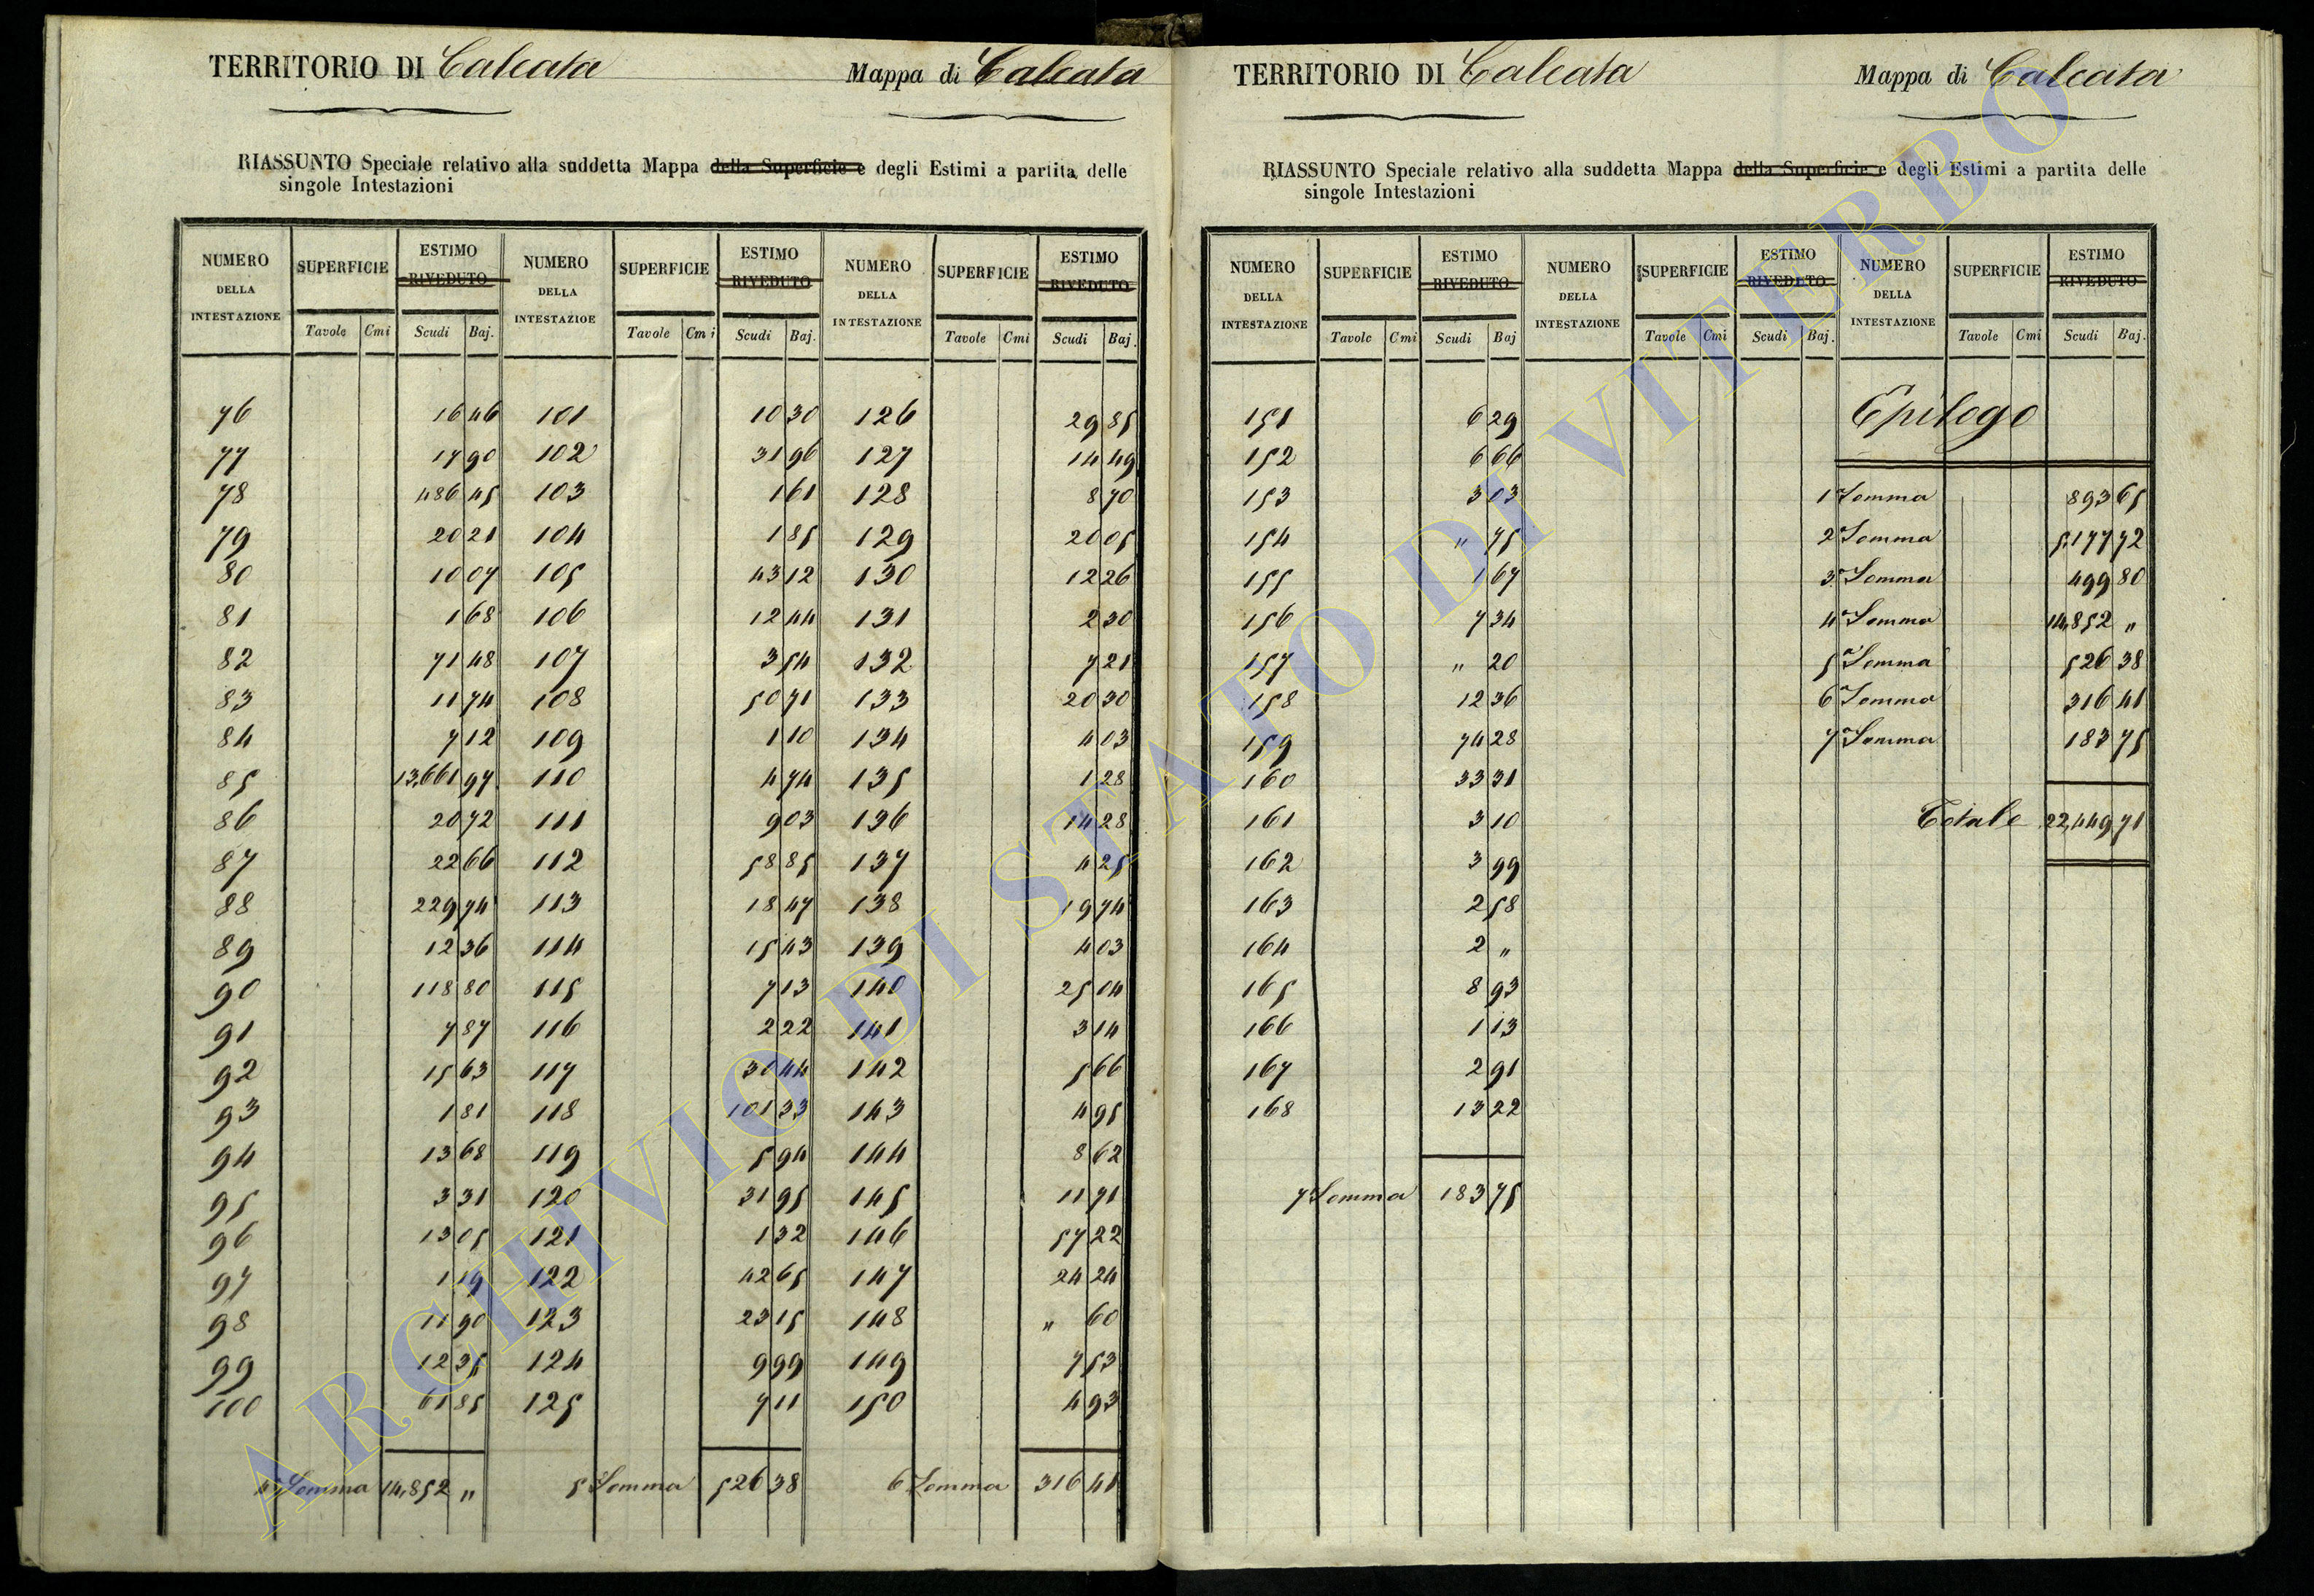 TERRITORIO DI Calcata Mappa di Calcata
RIASSUNTO Speciale relativo alla suddetta Mappa della Superficie e degli Estimi a partita delle
singole Intestazioni
NUMERO DELLA INTESTAZIONE SUPERFICIE ESTIMO RIVEDUTO NUMERO DELLA INTESTAZIOE SUPERFICIE ESTIMO RIVEDUTO NUMERO DELLA INTESTAZIONE SUPERFICIE ESTIMO RIVEDUTO
Tavole Cmi Scudi Baj. Tavole Cmi Scudi Baj. Tavole Cmi Scudi Baj.
76 16 46 101 10 30 126 29 85
77 17 90 102 31 96 127 14 49
78 486 45 103 1 61 128 8 70
79 20 21 104 1 85 129 20 05
80 10 07 105 43 12 130 12 26
81 1 68 106 12 44 131 2 30
82 71 48 107 3 54 132 7 21
83 11 74 108 50 71 133 20 30
84 7 12 109 1 10 134 4 03
85 13,661 97 110 4 74 135 1 28
86 20 72 111 9 03 136 14 28
87 22 66 112 58 85 137 4 25
88 229 74 113 18 47 138 19 74
89 12 36 114 15 43 139 4 03
90 118 80 115 7 13 140 25 04
91 7 87 116 2 22 141 3 14
92 15 63 117 30 44 142 5 66
93 1 81 118 101 33 143 4 95
94 13 68 119 5 94 144 8 62
95 3 31 120 31 95 145 11 71
96 13 05 121 1 32 146 57 22
97 1 19 122 42 65 147 24 24
98 11 90 123 23 15 148 " 60
99 12 35 124 9 99 149 7 53
100 61 85 125 7 11 150 4 93
4ª Somma 14,852 " 5ª Somma 526 38 6 Somma 316 41
TERRITORIO DI Calcata Mappa di Calcata
RIASSUNTO Speciale relativo alla suddetta Mappa della Superficie e degli Estimi a partita delle
singole Intestazioni
NUMERO DELLA INTESTAZIONE SUPERFICIE ESTIMO RIVEDUTO NUMERO DELLA INTESTAZIONE SUPERFICIE ESTIMO RIVEDUTO NUMERO DELLA INTESTAZIONE SUPERFICIE ESTIMO RIVEDUTO
Tavole Cmi Scudi Baj Tavole Cmi Scudi Baj. Tavole Cmi Scudi Baj.
151 6 29 Epilogo
152 6 66
153 3 03 1ª Somma 893 65
154 " 75 2ª Somma 5,177 72
155 1 67 3ª Somma 499 80
156 7 34 4ª Somma 14,852 "
157 " 20 5ª Somma 526 38
158 12 36 6ª Somma 316 41
159 74 28 7ª Somma 183 75
160 33 31
161 3 10 Totale 22,449 71
162 3 99
163 2 58
164 2 "
165 8 93
166 1 13
167 2 91
168 13 22
7 Somma 183 75
ARCHIVIO DI STATO DI VITERBO